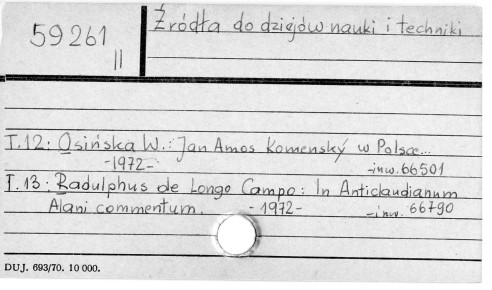 59261
II
Źródła do dziejów nauki i techniki
T.12: Osińska W.: Jan Amos Komenský w Polsce...
-1972-
-inw. 66501
T.13: Radulphus de Longo Campo: In Anticlaudianum
Alani commentum. -1972- -inw. 66790
DUJ. 693/70. 10 000.